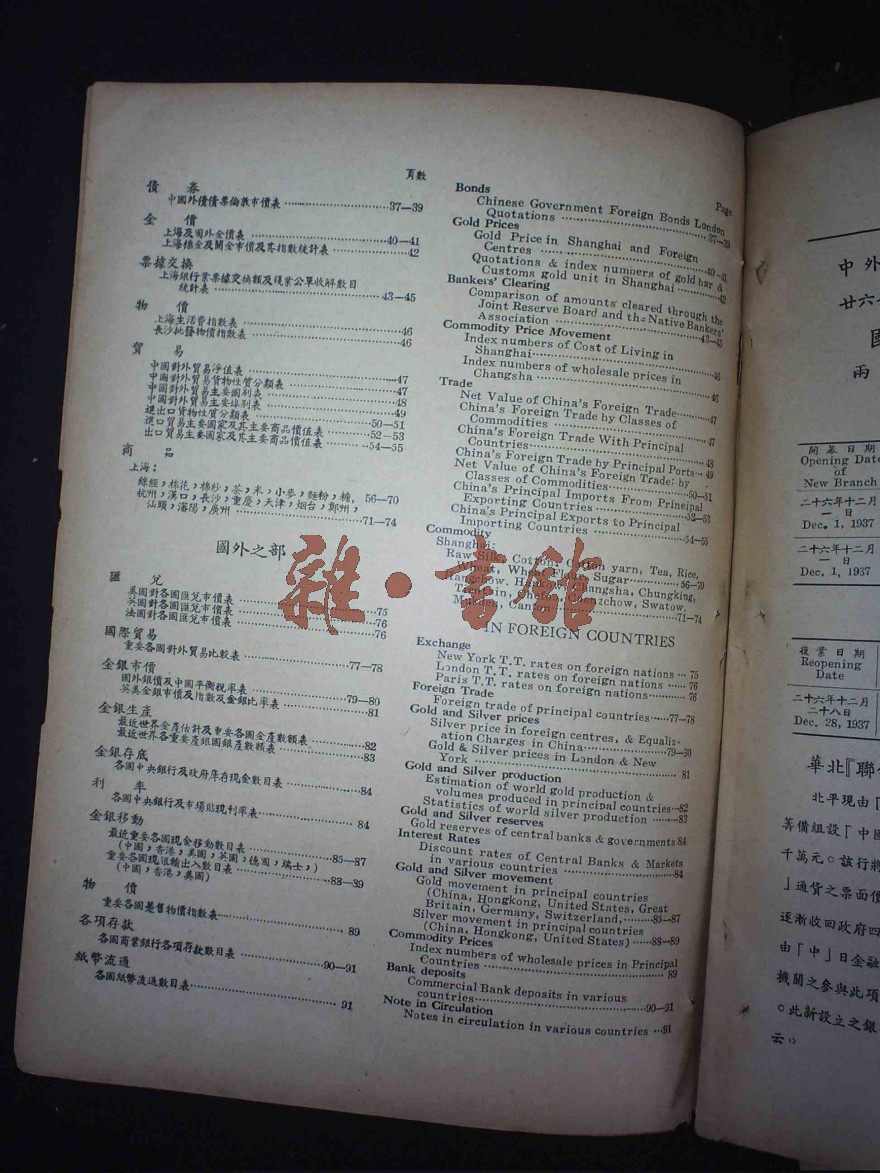 頁數
債 券
中國外債債票倫敦市價表 37—39
金 價
上海及國外金價表 40—41
上海標金及關金市價及其指數統計表 42
票據交換
上海銀行業票據交換額及錢業公單收解數目
統計表 43—45
物 價
上海生活費指數表 46
長沙批發物價指數表 46
貿 易
中國對外貿易淨值表 47
中國對外貿易貨物性質分類表 47
中國對外貿易主要國別表 48
中國對外貿易主要埠別表 49
進出口貨物性質分類表 50—51
進口貿易主要國家及其主要商品價值表 52—53
出口貿易主要國家及其主要商品價值表 54—55
商 品
上海:
絲經,棉花,棉紗,茶,米,小麥,麵粉,糖, 56—70
杭州,漢口,長沙,重慶,天津,烟台,鄭州,
汕頭,瀋陽,廣州 71—74
國外之部
匯 兌
美國對各國匯兌市價表 75
英國對各國匯兌市價表 76
法國對各國匯兌市價表 76
國際貿易
重要各國對外貿易比較表 77—78
金銀市價
國外銀價及中國平衡稅率表 79—80
英美金銀市價及指數及金銀比率表 81
金銀生產
最近世界金產估計及重要各國金產數額表 82
最近世界各重要產銀國銀產數額表 83
金銀存底
各國中央銀行及政府庫存現金數目表 84
利 率
各國中央銀行及市場貼現利率表 84
金銀移動
最近重要各國現金移動數目表 85—87
(中國,香港,美國,英國,德國,瑞士,)
重要各國現銀輸出入數目表 88—89
(中國,香港,美國)
物 價
重要各國躉售物價指數表 89
各項存款
各國商業銀行各項存款數目表 90—91
紙幣流通
各國紙幣流通數目表 91
Page
Bonds
Chinese Government Foreign Bonds London
Quotations 37—39
Gold Prices
Gold Price in Shanghai and Foreign
Centres 40-41
Quotations & index numbers of gold bar &
Customs gold unit in Shanghai 42
Bankers' Clearing
Comparison of amounts cleared through the
Joint Reserve Board and the Native Bankers'
Association 43—45
Commodity Price Movement
Index numbers of Cost of Living in
Shanghai 46
Index numbers of wholesale prices in
Changsha 46
Trade
Net Value of China's Foreign Trade 47
China's Foreign Trade by Classes of
Commodities 47
China's Foreign Trade With Principal
Countries 48
China's Foreign Trade by Principal Ports 49
Net Value of China's Foreign Trade: by
Classes of Commodities 50—51
China's Principal Imports From Principal
Exporting Countries 52—53
China's Principal Exports to Principal
Importing Countries 54—55
Commodity
Shanghai:
Raw Silk, Cotton, Cotton yarn, Tea, Rice,
Wheat, Wheat Flour, Sugar 56—70
Hangchow, Hankow, Changsha, Chungking,
Tientsin, Chefoo, Chengchow, Swatow,
Mukden, Canton 71—74
IN FOREIGN COUNTRIES
Exchange
New York T.T. rates on foreign nations 75
London T.T. rates on foreign nations 76
Paris T.T. rates on foreign nations 76
Foreign Trade
Foreign trade of principal countries 77—78
Gold and Silver prices
Silver price in foreign centres, & Equaliz-
ation Charges in China 79—80
Gold & Silver prices in London & New
York 81
Gold and Silver production
Estimation of world gold production &
volumes produced in principal countries 82
Statistics of world silver production 83
Gold and Silver reserves
Gold reserves of central banks & governments 84
Interest Rates
Discount rates of Central Banks & Markets
in various countries 84
Gold and Silver movement
Gold movement in principal countries
(China, Hongkong, United States, Great
Britain, Germany, Switzerland, 85—87
Silver movement in principal countries
(China, Hongkong, United States) 88—89
Commodity Prices
Index numbers of wholesale prices in Principal
Countries 89
Bank deposits
Commercial Bank deposits in various
countries 90—91
Note in Circulation
Notes in circulation in various countries 91
雜·書館
中外
廿六
國
兩
開幕日期
Opening Date
of
New Branch
二十六年十二月
一日
Dec. 1, 1937
二十六年十二月
一日
Dec. 1, 1937
復業日期
Reopening
Date
二十六年十二月
二十八日
Dec. 28, 1937
華北『聯
北平現由「
籌備組設「中國
千萬元。該行將
」通貨之票面價
逐漸收回政府四
由「中」日金融
機關之參與此項
。此新設立之銀
云。